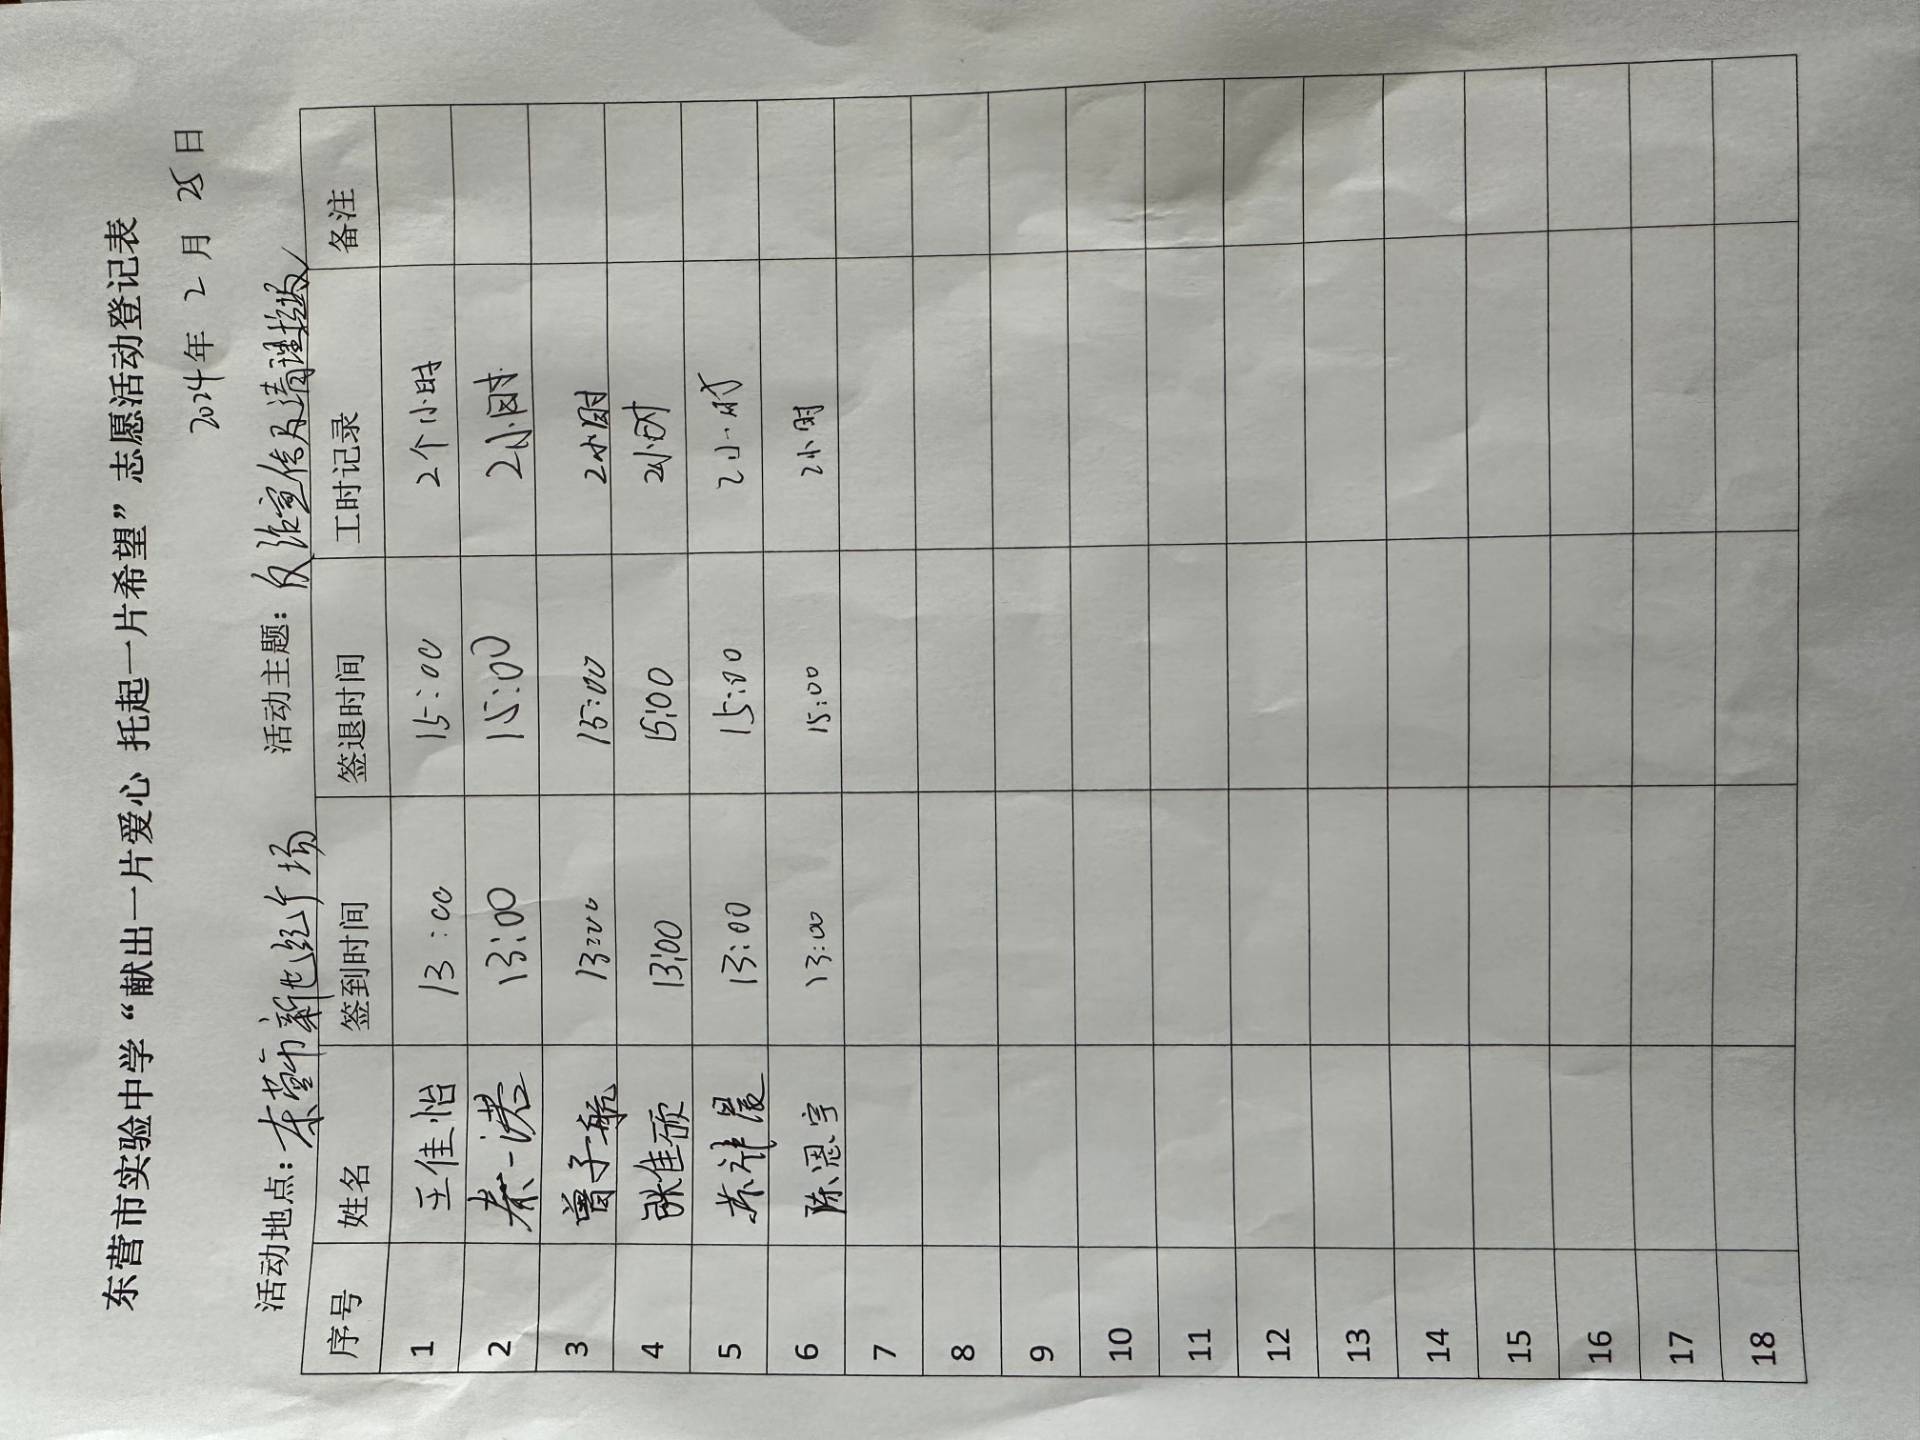 东营市实验中学“献出一片爱心 托起一片希望”志愿活动登记表
2024年 2 月 25 日
活动地点：东营市新世纪广场 活动主题：反诈宣传及清理垃圾
序号 姓名 签到时间 签退时间 工时记录 备注
1 王佳怡 13:00 15:00 2个小时
2 秦一诺 13:00 15:00 2小时
3 曾子航 13:00 15:00 2小时
4 张佳硕 13:00 15:00 2小时
5 苏祥晨 13:00 15:00 2小时
6 陈恩宇 13:00 15:00 2小时
7
8
9
10
11
12
13
14
15
16
17
18